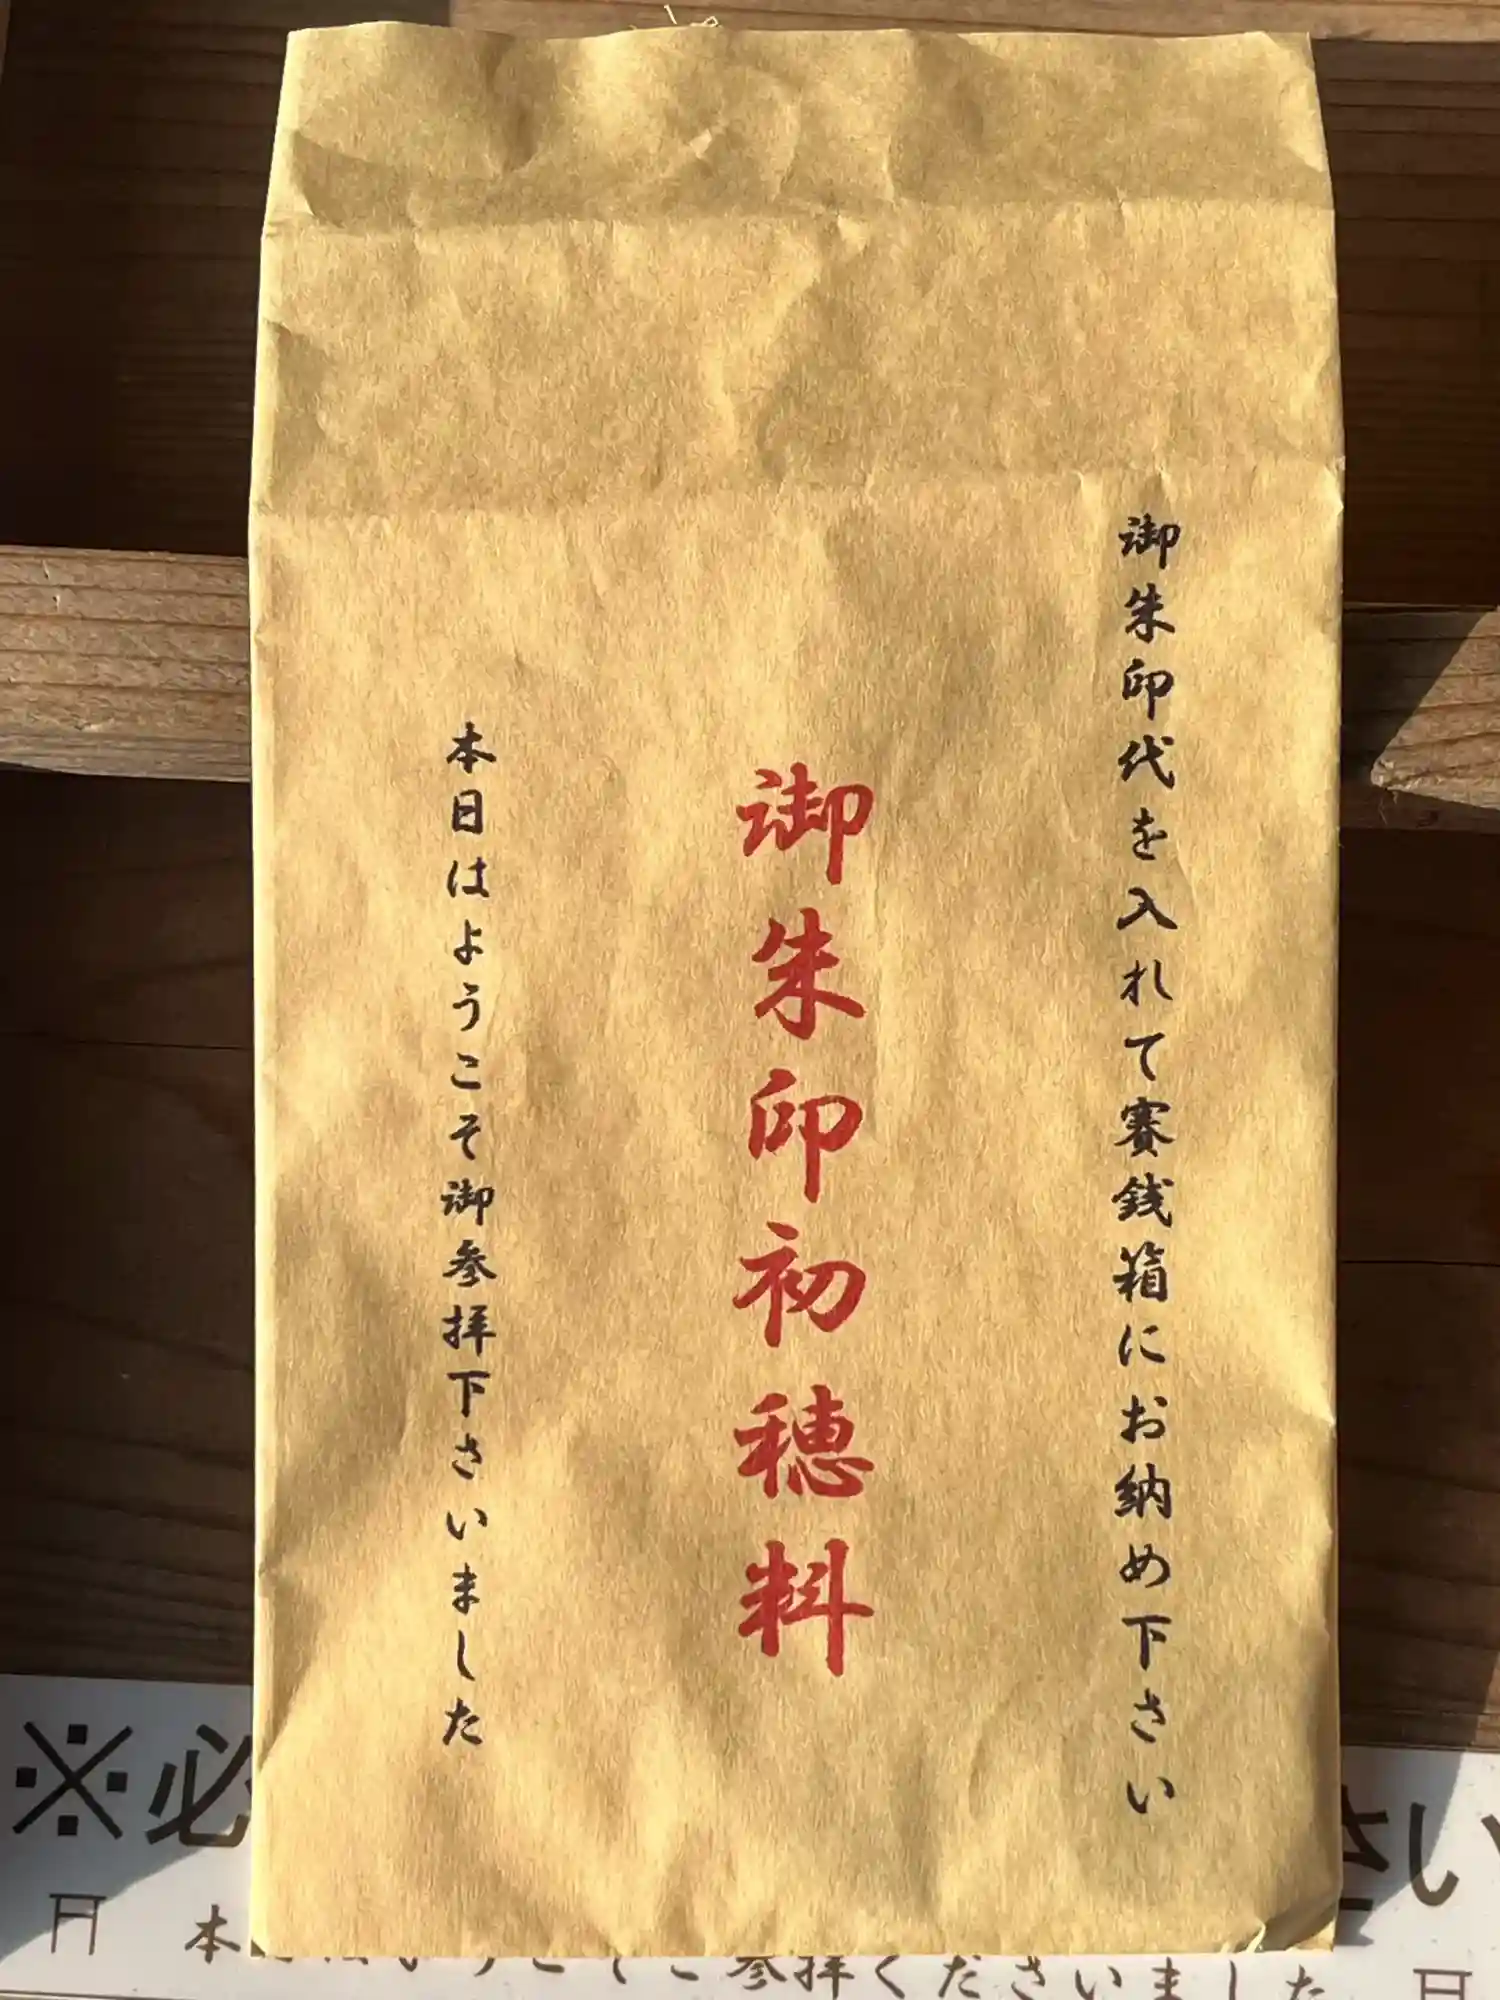 御朱印代を入れて賽銭箱にお納め下さい
御朱印初穂料
本日はようこそ御参拝下さいました
※必
さい
本
ようこそご参拝くださいました